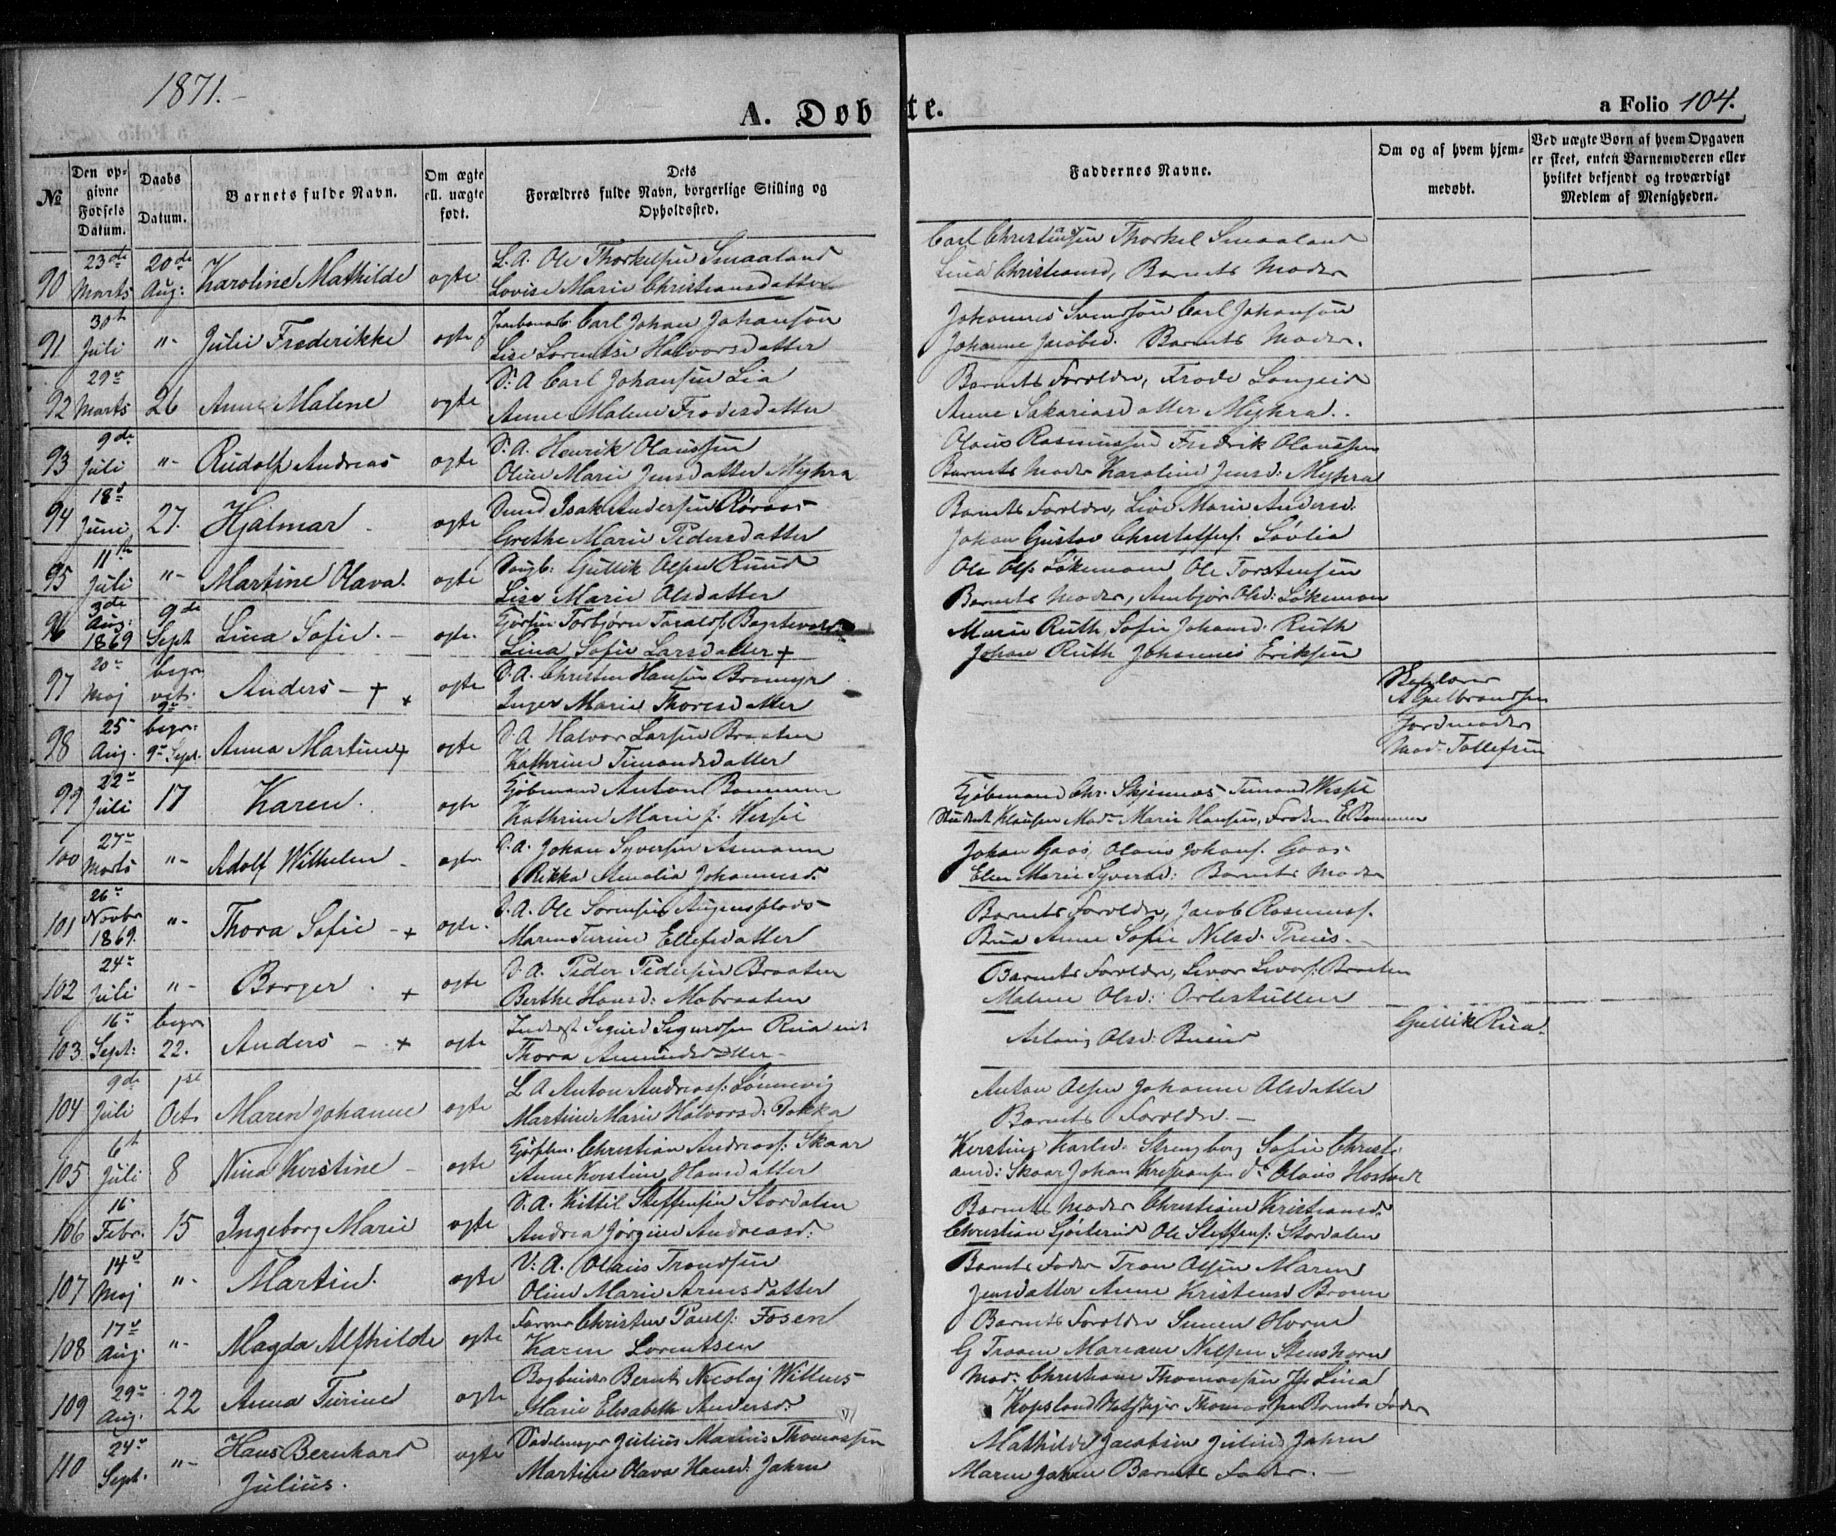 1871.-
A. Døbte.
a Folio 104.
№
Den opgivne Fødsels Datum.
Daabs Datum.
Barnets fulde Navn.
Om ægte ell. uægte født.
Dets Forældres fulde Navn, borgerlige Stilling og Opholdssted.
Faddernes Navne.
Om og af hvem hjemmedøbt.
Ved uægte Børn af hvem Opgaven er skeet, enten Barnemoderen eller hvilket bekjendt og troværdigt Medlem af Menigheden.
90 23de Marts 20de Aug: Karoline Mathilde ægte L.A. Ole Thorkelsen Smaaland
Lovise Marie Christiansdatter
Carl Christensen Thorkel Smaaland
Lina Christiansd, Barnets Moder
91 30t Juli "- Julie Frederikke ægte Carl Johan Johansøn
Lise Lorentse Halvorsdatter
Johannes Svendsøn Carl Johansøn
Johanne Jacobsd. Barnets Moder.
92 29de Marts 26 Anne Malene ægte D: A Carl Johansen Lia
Anne Malene Frodesdatter
Barnets Forældre, Frode Langeid
Anne Sakariasdatter Myhra.
93 9de Juli "- Rudolf Andreas ægte D. A. Henrik Olaussen
Oline Marie Jensdatter Myhra
Olaus Rasmussen Fredrik Olaussen
Barnets Moder Karoline Jensd: Myhra
94 18de Juni 27. Hjalmar ægte Smed Isak Andersen Røraas
Grethe Marie Pedersdatter
Barnets Forældre, Live Marie Andersd.
Johan Gustav Christoffers: Løvlia
95 11te Juli "- Martine Olava. ægte Gullik Olsen Ruud
Lise Marie Olsdatter
Ole Ols: Løkemoen Ole Torstensen
Barnets Moder, Ambjør Olsd: Løkemoen
96 3de Aug: 1869 9de Sept Lina Sofie. - ægte. Torbjørn Taralds:
Lina Sofie Larsdatter +
Marie Ruth, Sofie Johansd. Ruth
Johan Ruth Johannes Eriksen
97 20de Maj begr. 9de Anders - + ægte D. A. Christen Hansen
Inger Marie Thoresdatter
98 25de Aug. begr: 9de Sept. Anna Martine + ægte D A Halvor Larsen Braaten
Kathrine Simonsdatter
Jordmoder
Mad: Tollefsen
99 22de Juli 17 Karen. ægte Kjøbmand Anton Bommen
Kathrine Marie f. Wessel
Kjøbmand Chr. Skjennes
Klausen Mad: Marie Hansen,
100 27de Marts "- Adolf Wilhelm - ægte D.A. Johan Syversen
Rikka Amalia Johannesd.
Johan Gaas, Olaus Johans. Gaas
Elen Marie Syversd: Barnets Moder
101 26de Novbr 1869. "- Thora Sofie - + ægte. D. A. Ole Sørensen
Maren Turine Ellefsdatter
Barnets Forældre, Jacob Rasmuss.
Anne Sofie Nilsd.
102 24de Juli "- Børger. + ægte D. A. Peder Pedersen Braaten
Berthe Hansd: Mobraaten
Barnets Forældre, Sivor Sivors: Braaten
Malene Olsd:
103 16de Sept: begr 22. Anders - + ægte Inderst Sigurd Sigurdsen Rua
Thora Amundsdatter -
Aslaug Olsd:
Gullik Rua.
104 9de Juli 1ste Oct. Maren Johanne ægte L A Anton Andreass: Lønnevig
Martine Marie Halvorsd: Bakka
Anton Olsen Johanne Olsdatter
Barnets Forældre. -
105 6t Juli 8 Nina Kirstine - ægte Christian Andreass. Skaar
Anne Kirstine Hansdatter
Kirstine Karlsd. Sofie Christiansd: Skaar Johan
106 16 Febr. 15 Ingeborg Marie ægte D. A. Kittil Steffensen Stordalen
Andrea Jørgine Andreasd:
Barnets Moder Christiane Kristiansd.
Christian Ole Steffens: Stordalen
107 14de Maj "- Martin. ægte D: A. Olaus Trondsen
Oline Marie Arnesdatter
Barnets Fader Tron Olsen Maren
Jensdatter Anne Kristensd
108 17de Aug. "- Magda Alfhilde ægte Farver Christen Pauls: Fosen
Karen Lorentsen
Barnets Forældre
Mariane Nilsen Stenshorn
109 29de Aug. 22 Anna Turine ægte Bogbinder Bernt Nicolaj
Marie Elisabeth Andersd:
Mad: Christiane Thomassen Lina
Kopsland Thomassen Barnets Fader
110 24de Sept. "- Hans Bernhard
Julius. ægte Sadelmager Julius Marius Thomassen
Martine Olava Hansd. Jahren
Mathilde Jacobsen Julius Jahren
Maren Jahren Barnets Fader. -